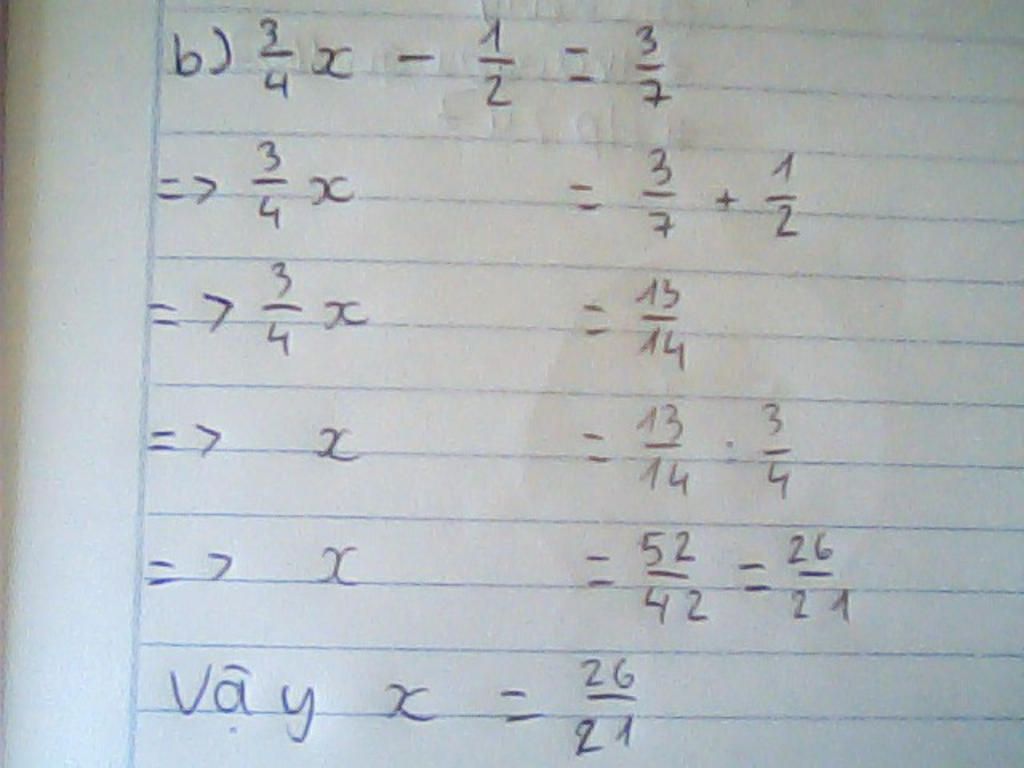 b) 3/4 x - 1/2 = 3/7
=> 3/4 x = 3/7 + 1/2
=> 3/4 x = 13/14
=> x = 13/14 : 3/4
=> x = 52/42 = 26/21
Vậy x = 26/21